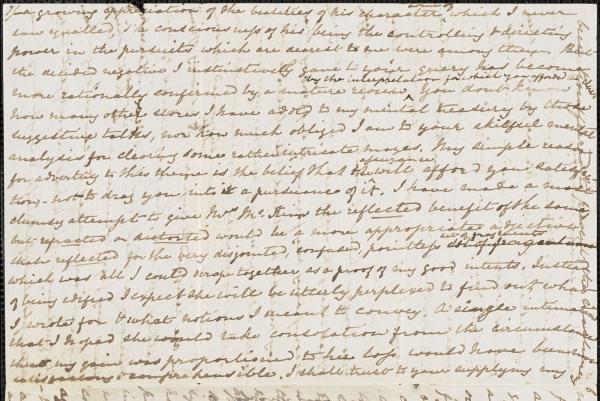 The growing appreciation of the beauties of his character which I never
saw equalled, The consciousness of his being the controlling & directing
power in the pursuits which are dearest to me were among them, But
the decided negative I instinctively gave to your query has become
by the interpretation for which you afford the
more rationally confirmed by a mature review. You don't know
how many other stores I have added to my mental treasury by those
suggestive talks, nor how much obliged I am to your skilful mental
analysis for clearing some rather intricate mazes. My simple reason
assurance
for adverting to this theme is the belief that the will afford you satisfac
tion - not to drag you into a pursuance of it. I have made a most
clumsy attempt to give Mrs Mc Kim the reflected benefit of the same
but refracted or distorted would be a more appropriate adjective
than reflected for the very disjointed, confused, pointless
which was all I could scrape together as a proof of my good intents. Instead
of being edified I expect she will be utterly perplexed to find out what
I wrote for & what notions I meant to convey. A single
that I hoped she would take consolation from the circumstance
that my gain was proportioned to her loss would have been
comprehensible. I shall trust to your supplying my